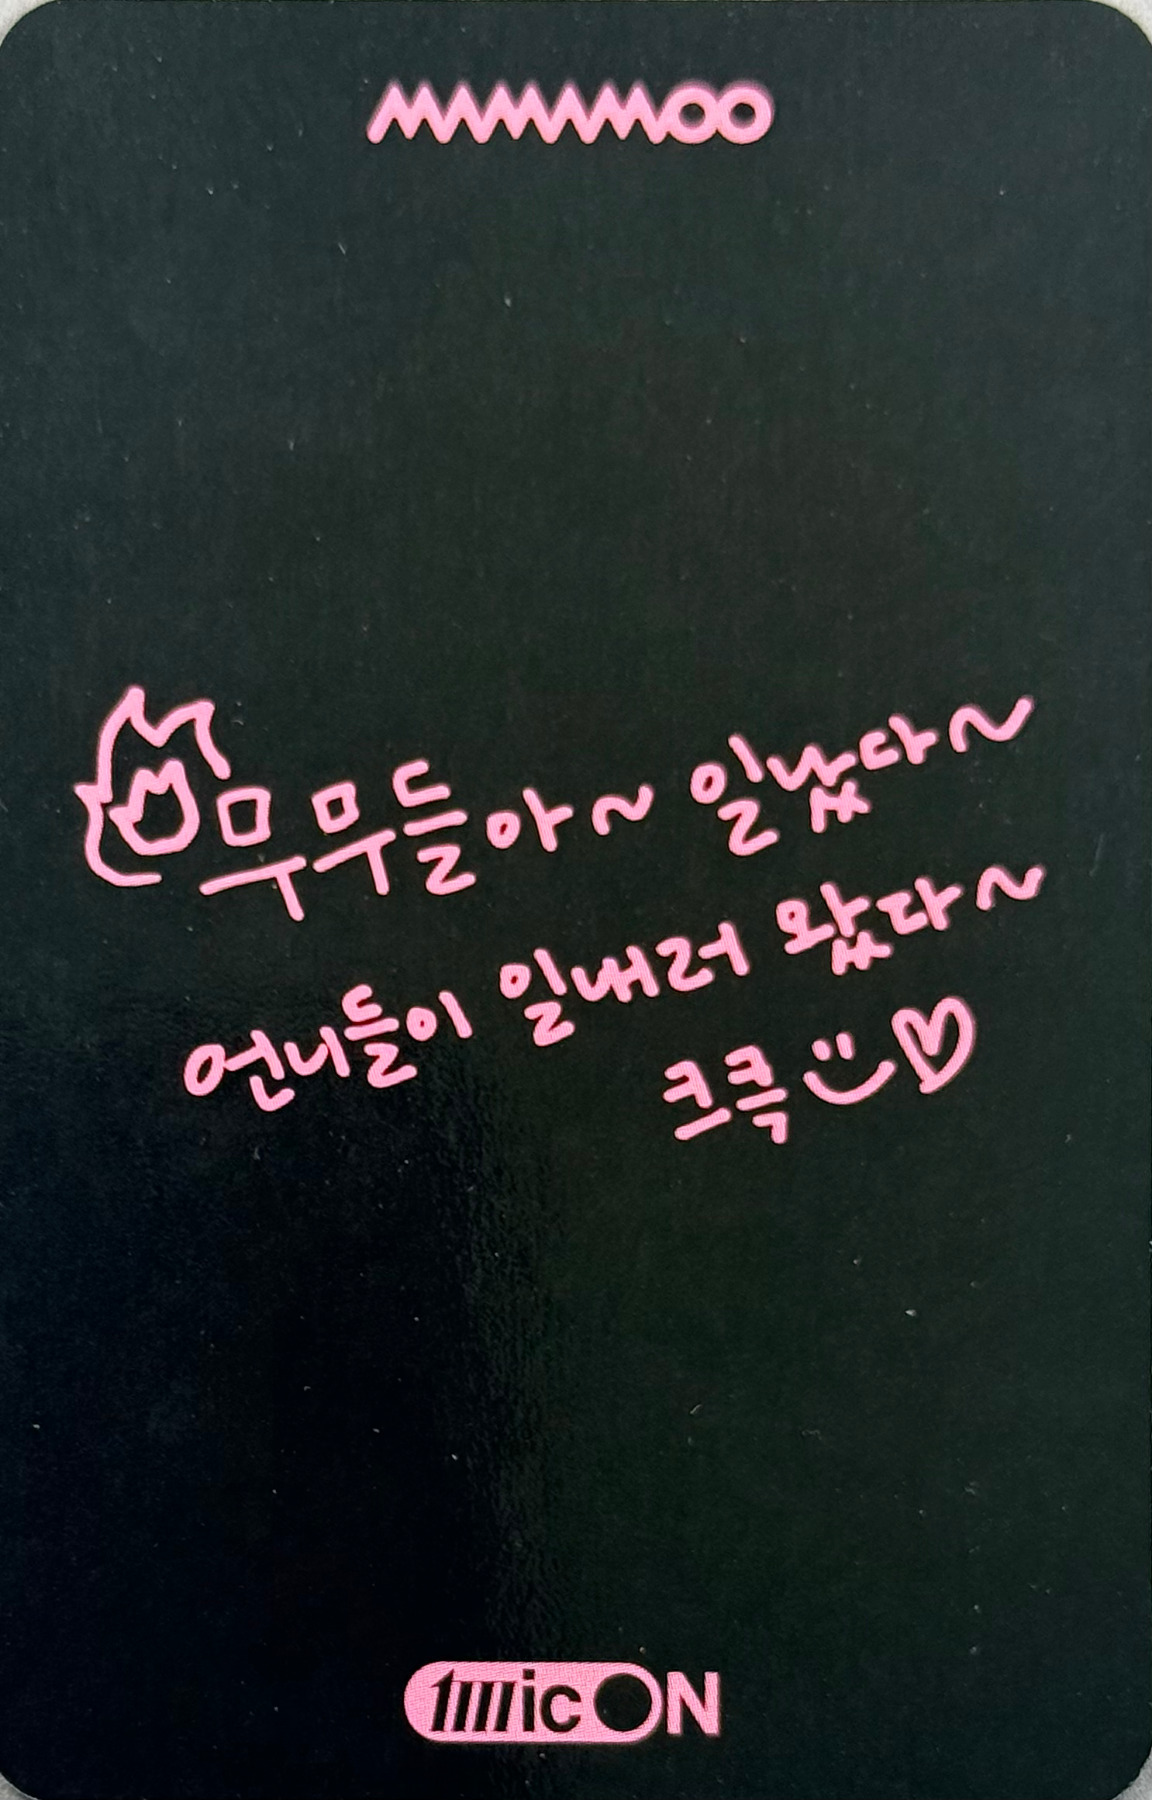 MAMAMOO
무무들아~ 일났다~
언니들이 일내러 왔다~
크큭
micON